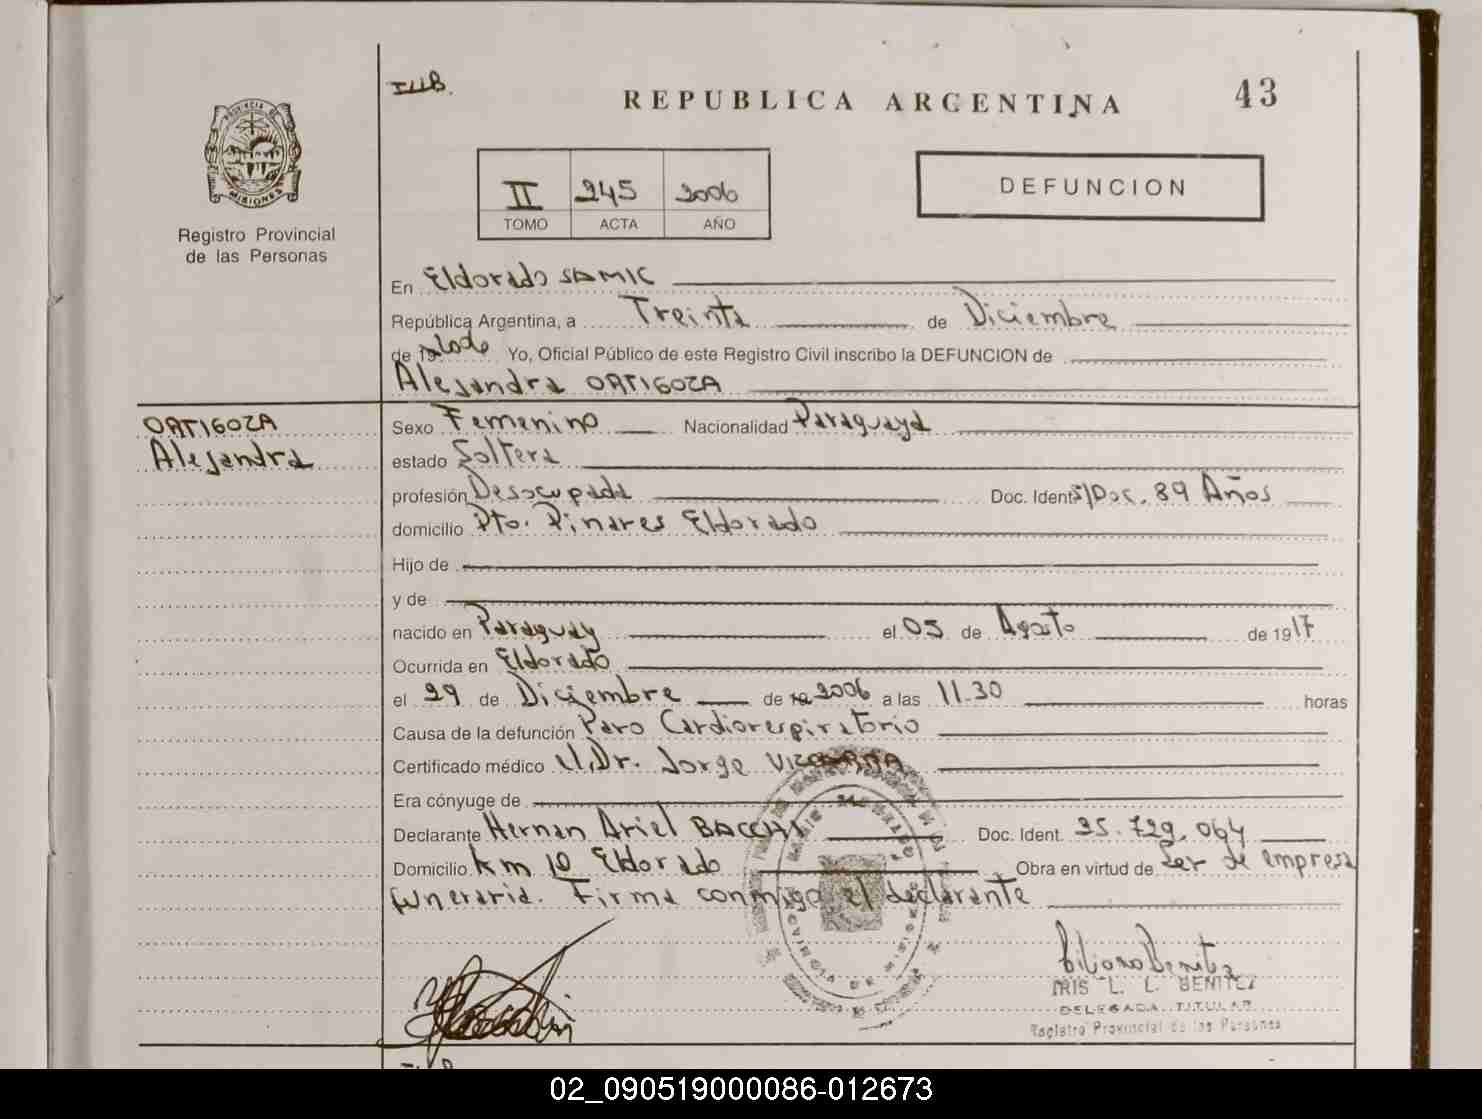 REPUBLICA ARGENTINA
43
PROVINCIA DE
MISIONES
Registro Provincial
de las Personas
II 245 2006
TOMO ACTA AÑO
DEFUNCION
En Eldorado SAMIC
República Argentina, a Treinta de Diciembre
de 19 2006 Yo, Oficial Público de este Registro Civil inscribo la DEFUNCION de
Alejandra ORTIGOZA
ORTIGOZA
Alejandra
Sexo Femenino Nacionalidad Paraguaya
estado Soltera
profesión Desocupada Doc. Ident. S/Doc. 89 Años
domicilio Pto. Pinares Eldorado
Hijo de
y de
nacido en Paraguay el 05 de Agosto de 1917
Ocurrida en Eldorado
el 29 de Diciembre de 2006 a las 11.30 horas
Causa de la defunción Paro Cardiorespiratorio
Certificado médico Dr. Jorge
Era cónyuge de
Declarante Hernan Ariel Doc. Ident. 25.729.064
Domicilio Km 10 Eldorado Obra en virtud de Ser de empresa
funeraria. Firma conmigo el declarante
IRIS L. L. BENITEZ
DELEGADA TITULAR
Registro Provincial de las Personas
02_090519000086-012673